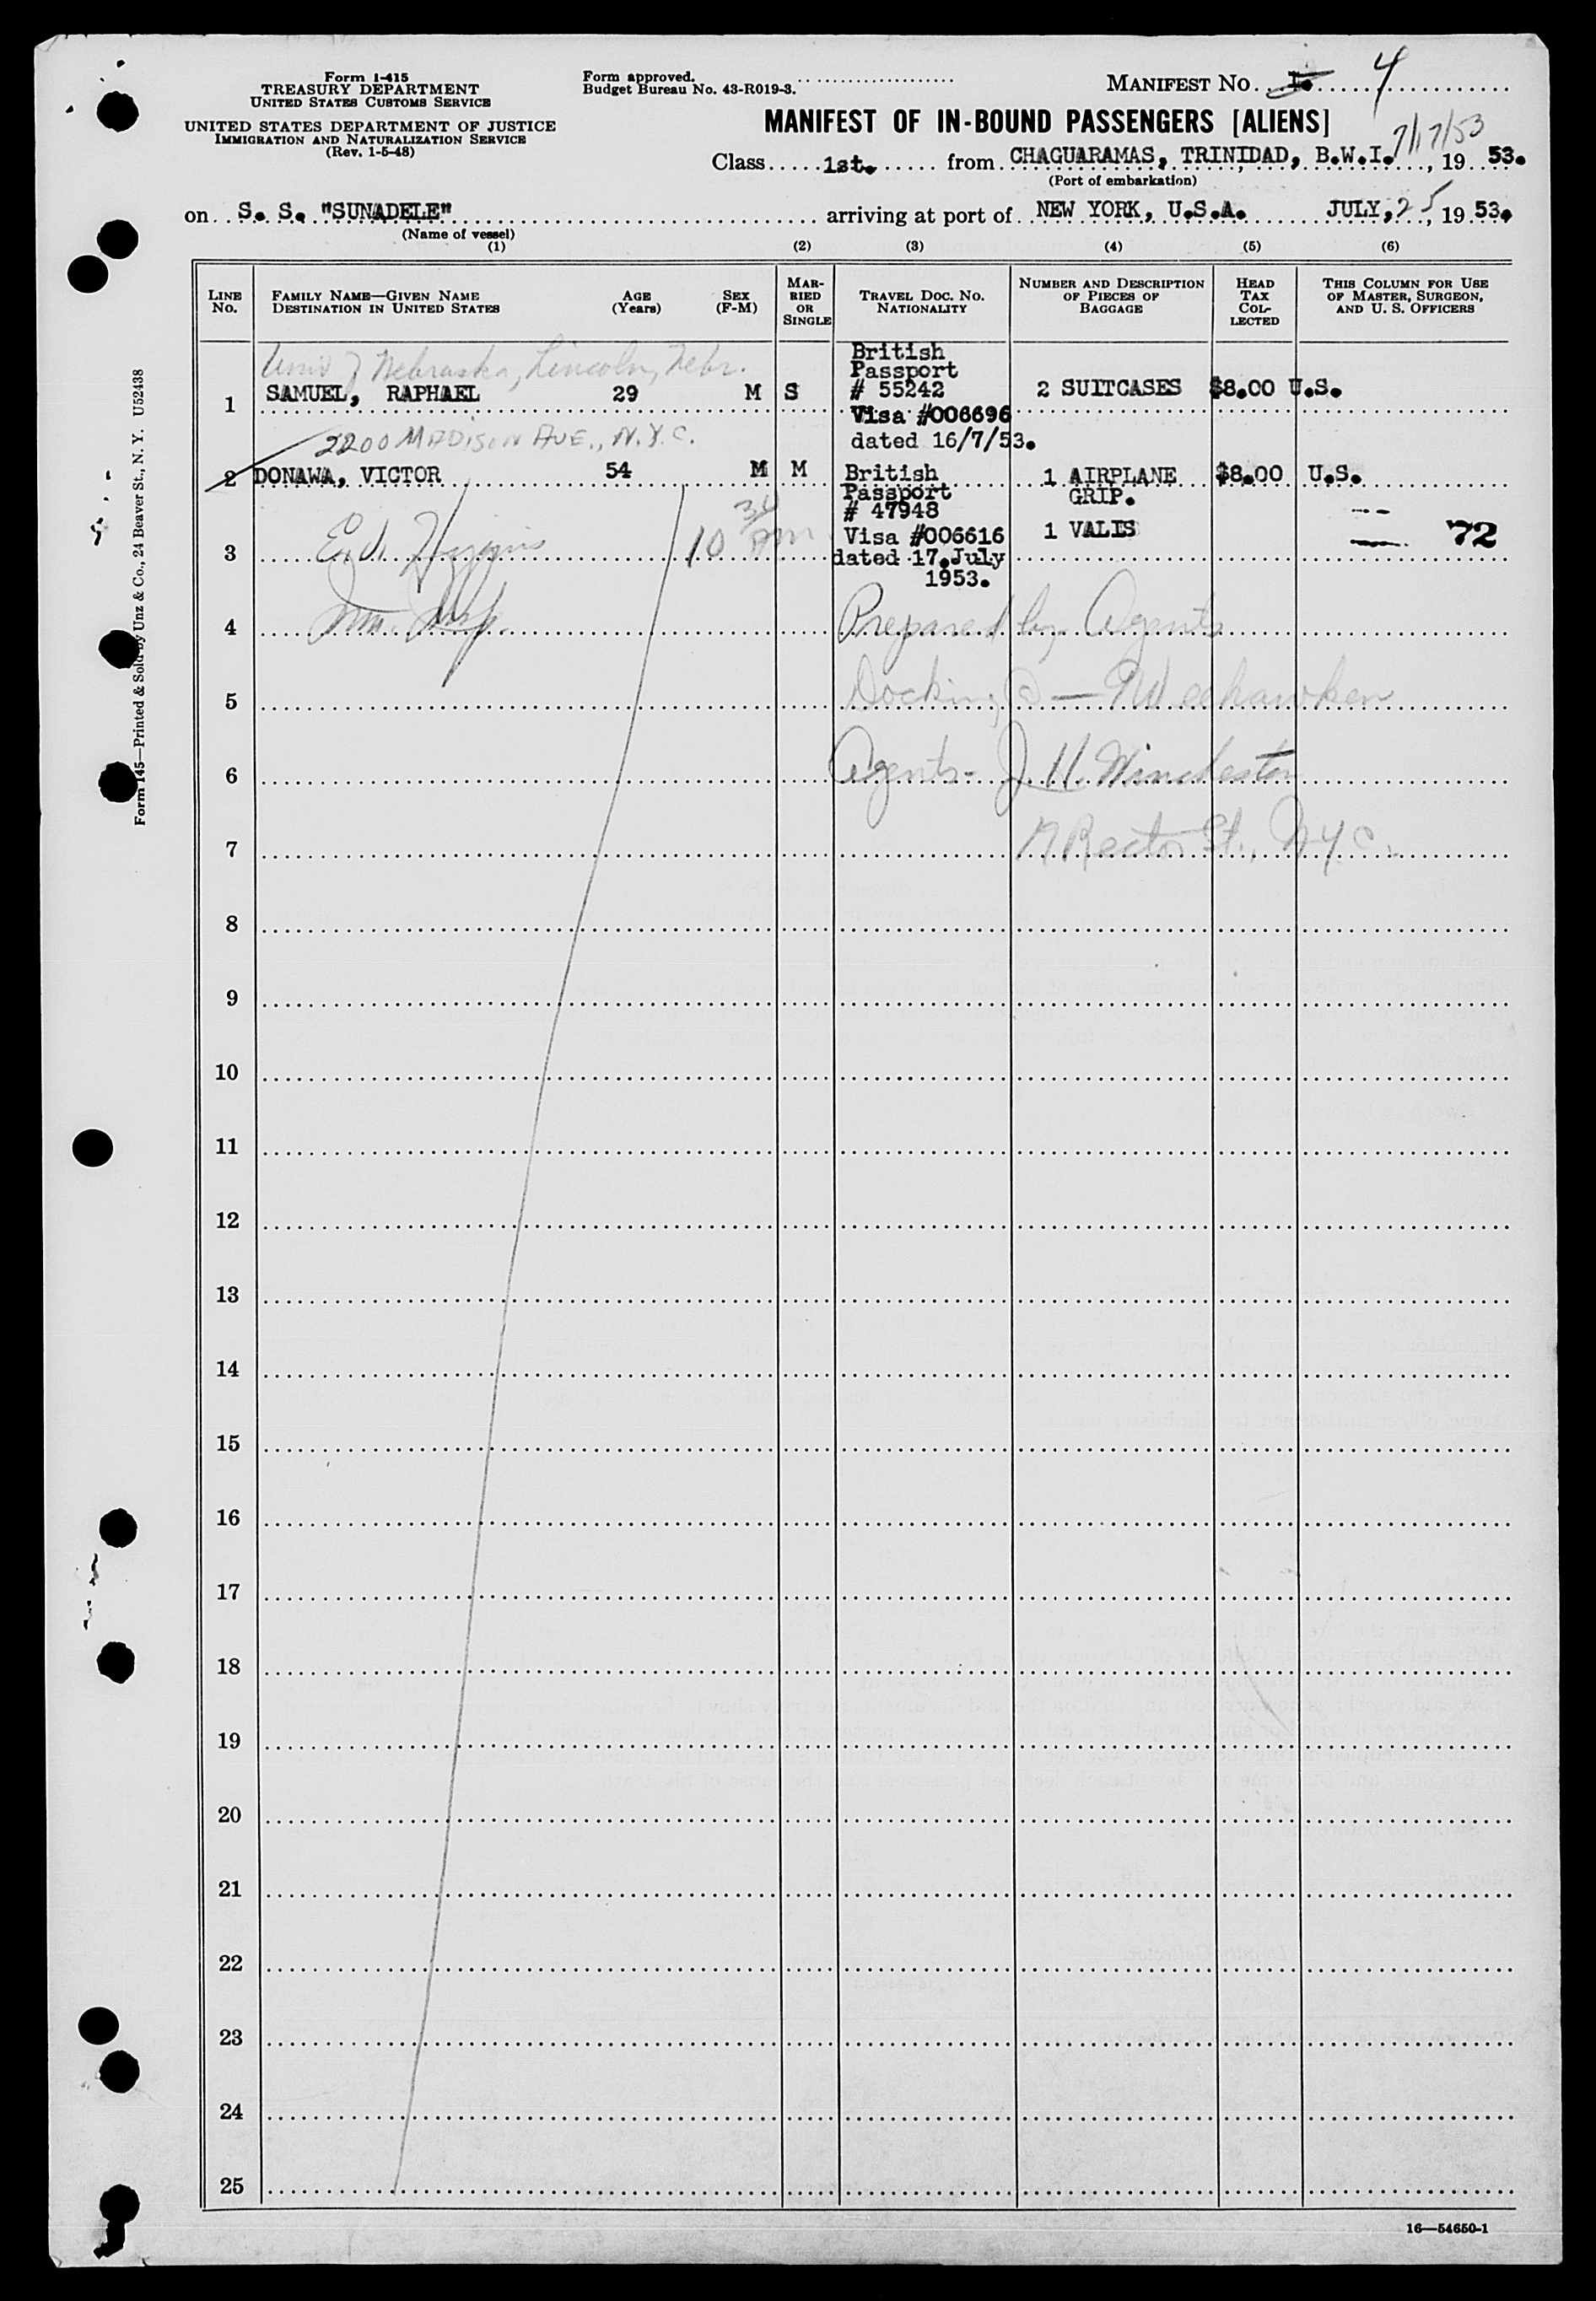 Form 1-415
TREASURY DEPARTMENT
UNITED STATES CUSTOMS SERVICE
UNITED STATES DEPARTMENT OF JUSTICE
IMMIGRATION AND NATURALIZATION SERVICE
(Rev. 1-5-48)
Form approved.
Budget Bureau No. 43-R019-3.
MANIFEST NO. 1. 4
MANIFEST OF IN-BOUND PASSENGERS [ALIENS]
7/17/53
Class 1st. from CHAGUARAMAS, TRINIDAD, B.W.I., 19 53.
(Port of embarkation)
on S. S. "SUNADELE" arriving at port of NEW YORK, U.S.A. JULY, 25, 19 53.
(Name of vessel)
(1) (2) (3) (4) (5) (6)
LINE NO. FAMILY NAME—GIVEN NAME DESTINATION IN UNITED STATES AGE (Years) SEX (F-M) MARRIED OR SINGLE TRAVEL DOC. NO. NATIONALITY NUMBER AND DESCRIPTION OF PIECES OF BAGGAGE HEAD TAX COLLECTED THIS COLUMN FOR USE OF MASTER, SURGEON, AND U. S. OFFICERS
Univ of Nebraska, Lincoln, Nebr.
1 SAMUEL, RAPHAEL 29 M S British Passport # 55242 2 SUITCASES $8.00 U.S.
Visa #006696
dated 16/7/53.
2200 MADISON AVE., N.Y.C.
2 DONAWA, VICTOR 54 M M British Passport # 47948 1 AIRPLANE GRIP. $8.00 U.S.
Visa #006616 1 VALIS 72
3 dated 17.July
1953.
10 34 AM
Imm. Insp.
4 Prepared by Agents
5 Docking @ — Weehawken
6 Agents - J. H. Winchester
7 Rector St., N.Y.C.
8
9
10
11
12
13
14
15
16
17
18
19
20
21
22
23
24
25
16—54650-1
Form 145—Printed & Sold by Unz & Co., 24 Beaver St., N. Y. U52438